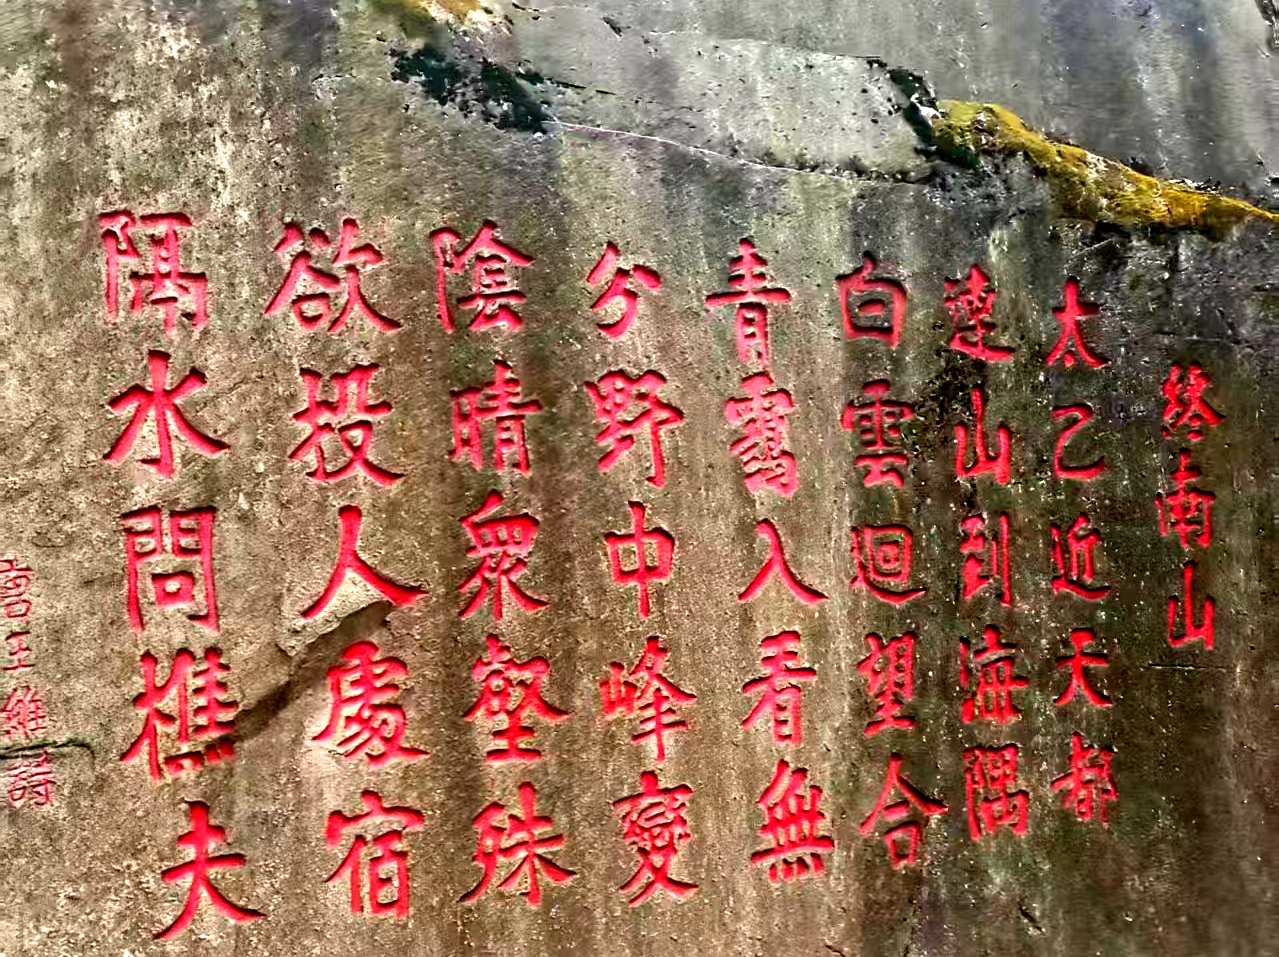 終南山
太乙近天都
連山到海隅
白雲迴望合
青靄入看無
分野中峰變
陰晴衆壑殊
欲投人處宿
隔水問樵夫
王維詩